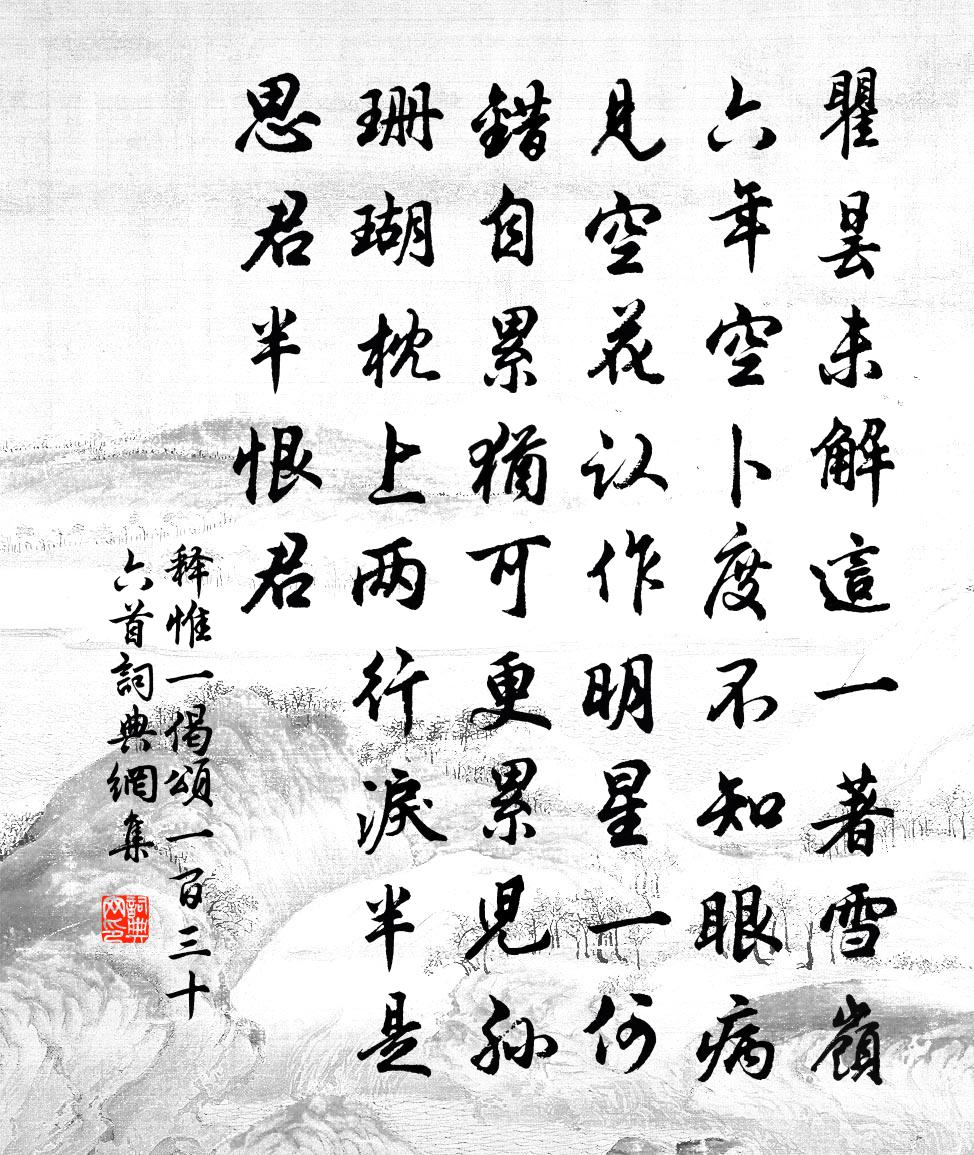 瞿昙未解這一著雪嶺
六年空卜度不知眼病
見空花认作明星一何
錯自累猶可更累児孙
珊瑚枕上两行淚半是
思君半恨君
释惟一偈頌一百三十
六首詞典網集
詞典网印